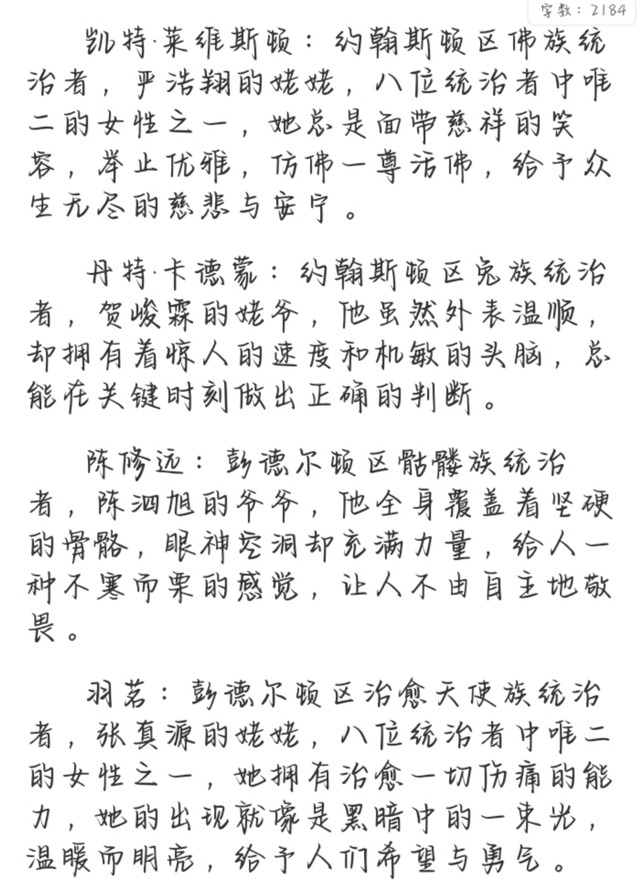 字数：2184
凯特·莱维斯顿：约翰斯顿区佛族统
治者，严浩翔的姥姥，八位统治者中唯
二的女性之一，她总是面带慈祥的笑
容，举止优雅，仿佛一尊活佛，给予众
生无尽的慈悲与安宁。
丹特·卡德蒙：约翰斯顿区兔族统治
者，贺峻霖的姥爷，他虽然外表温顺，
却拥有着惊人的速度和机敏的头脑，总
能在关键时刻做出正确的判断。
陈修远：彭德尔顿区骷髅族统治
者，陈泗旭的爷爷，他全身覆盖着坚硬
的骨骼，眼神空洞却充满力量，给人一
种不寒而栗的感觉，让人不由自主地敬
畏。
羽茗：彭德尔顿区治愈天使族统治
者，张真源的姥姥，八位统治者中唯二
的女性之一，她拥有治愈一切伤痛的能
力，她的出现就像是黑暗中的一束光，
温暖而明亮，给予人们希望与勇气。